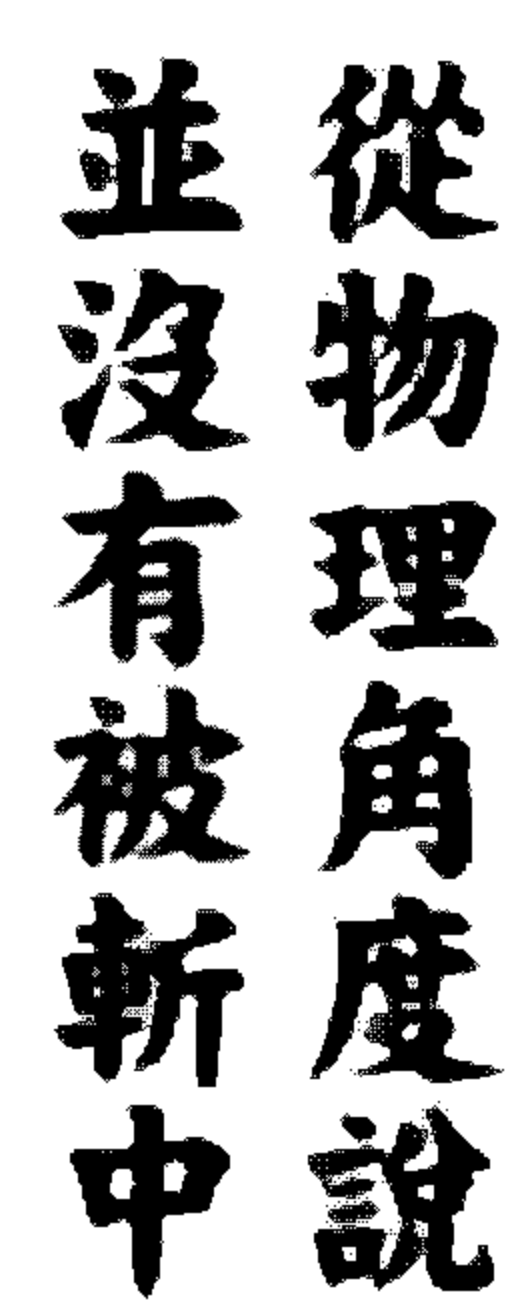 從物理角度說
並沒有被斬中